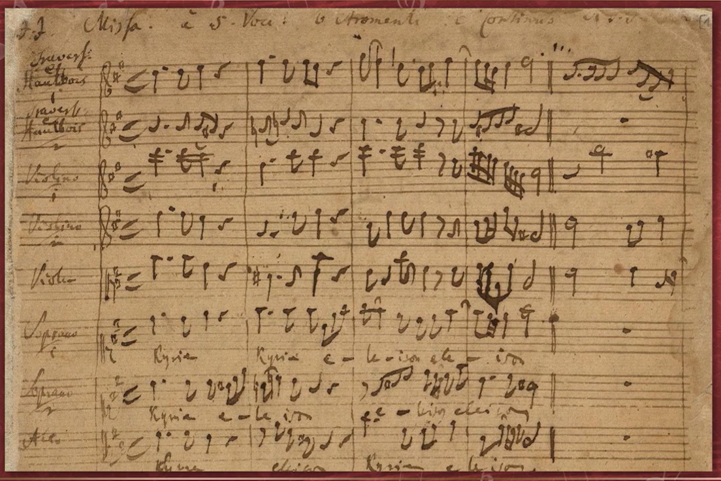 J.J. Missa. à 5. Voci. 6 Stromenti e Continuo
Travers:
Hautbois
1
Travers:
Hautbois
2
Violino
1
Violino
2
Viola
Soprano
1
Kyrie Kyrie e - le - ison ele - ison
Soprano
2
Kyrie e - le ison e - leison eleison
Alto
Kyrie eleison Kyrie e le ison